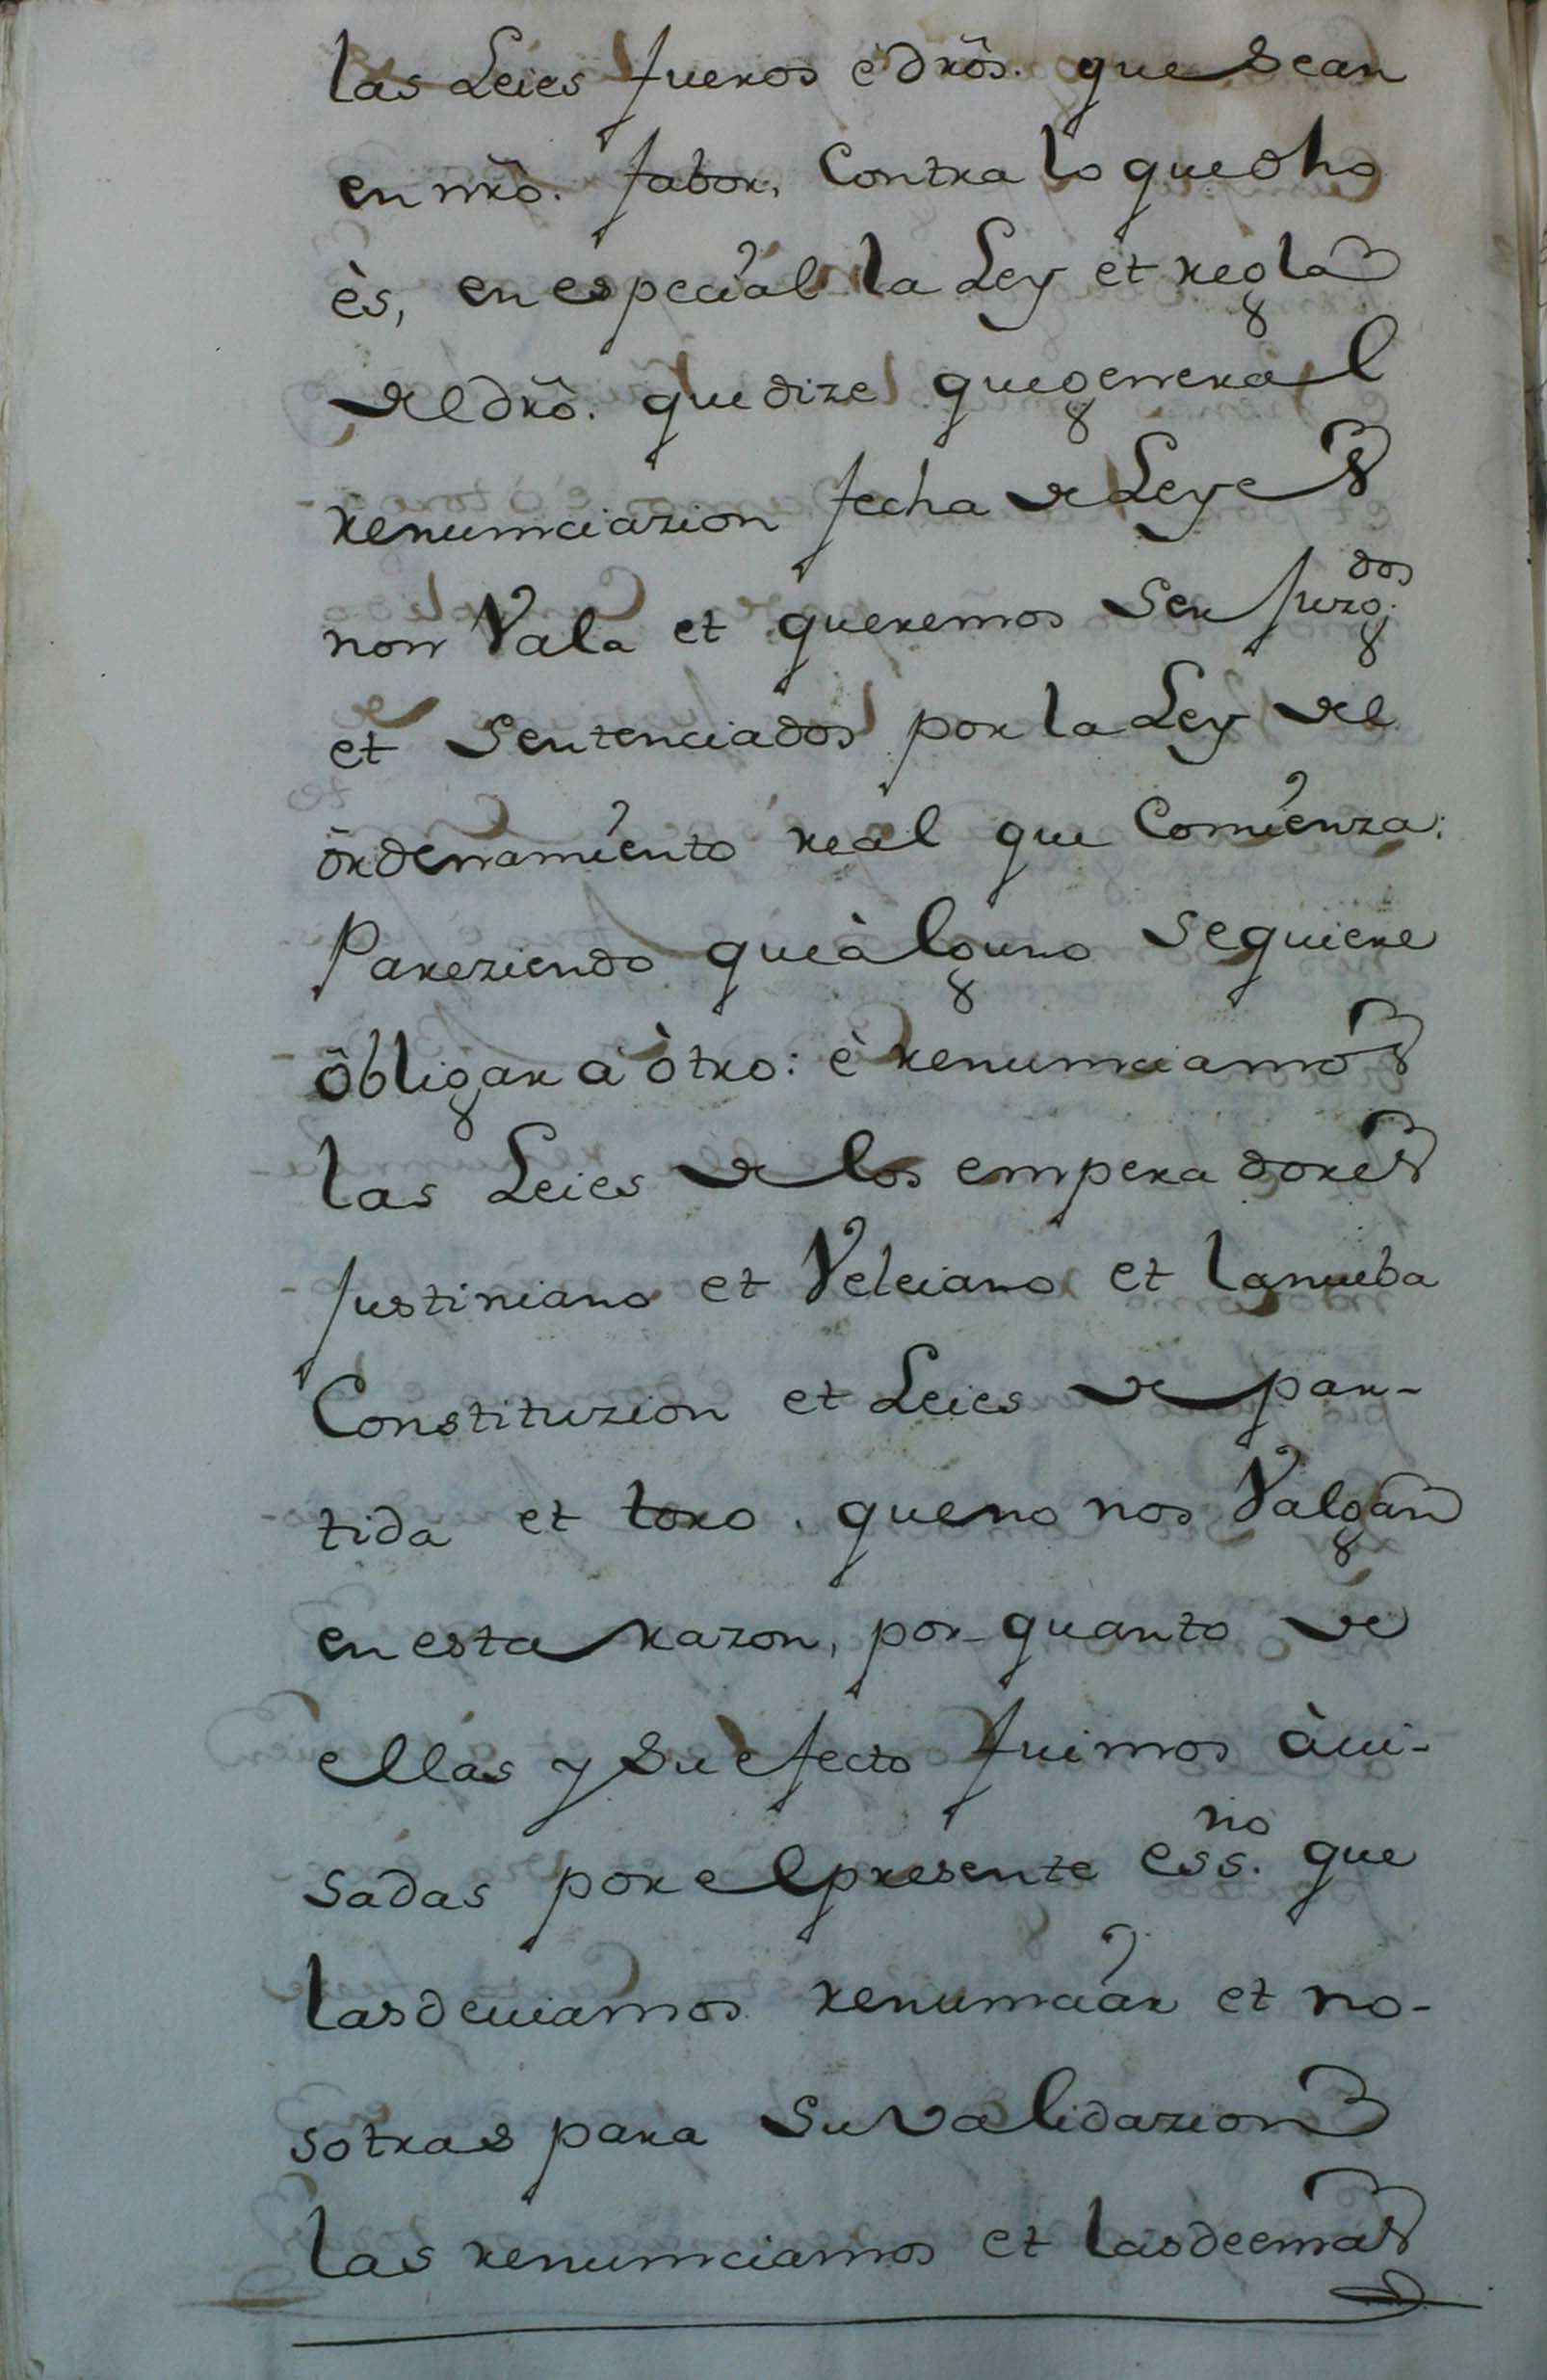 las Leies fueros è drõs. que sean
en nrõ. fabor, Contra lo que dho
ès, en especial la Ley et regla
del drõ. que dize que general
renumciazion fecha de Leyes
non Vala et queremos ser Juzg.dos
et sentenciados por la Ley del
õrdenamiento real que Comienza:
Pareziendo que àlguno se quiere
õbligar à òtro: è renumciamos
las Leies de los emperadores
Justiniano et Veleiano et la nueba
Constituzion et Leies de par-
tida et toro. que no nos Valgan
en esta razon, por quanto de
ellas y su efecto fuimos àui-
sadas por el presente ess.no que
las deuiamos renumciar et no-
sotras para su validazion
las renumciamos et las deemas